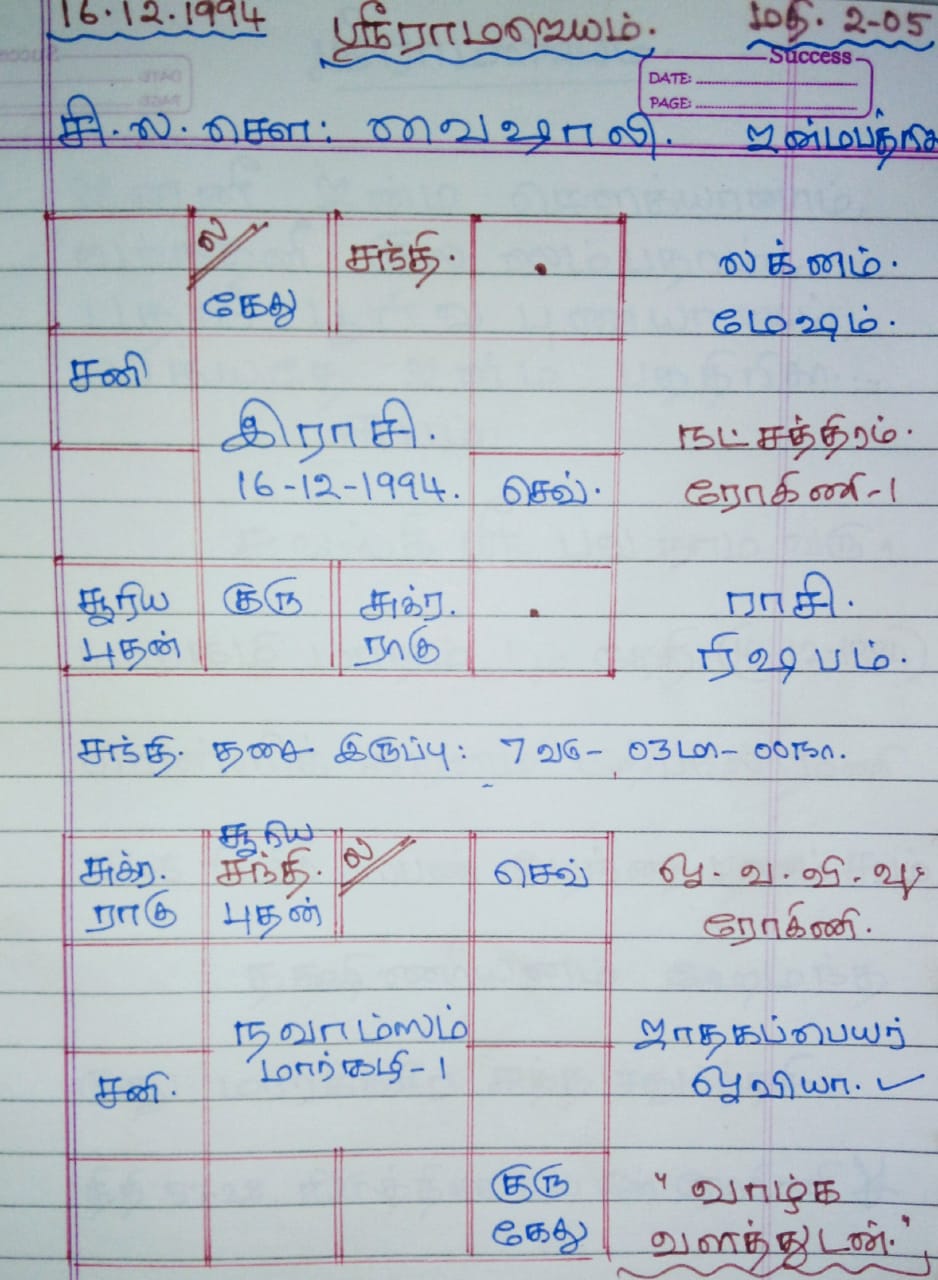 16.12.1994 ஸ்ரீராமஜெயம். மதி. 2-05
Success
DATE:
PAGE:
சி.ல.சௌ: வைஷாலி. ஜன்மபத்ரிக
ல
கேது
சந்தி.
லக்னம்.
மேஷம்.
சனி
இராசி.
16-12-1994.
செவ்.
நட்சத்திரம்.
ரோகிணி-1
சூரிய
புதன்
குரு
சுக்ர.
ராகு
ராசி.
ரிஷபம்.
சந்தி. தசை இருப்பு: 7வரு- 03மா- 00நா.
சுக்ர.
ராகு
சூரிய
சந்தி.
புதன்
ல
செவ்
ஓ.வ.வி.வு.
ரோகிணி.
நவாம்ஸம்
மார்கழி-1
ஜாதகப்பெயர்
ஓவியா.
சனி.
குரு
கேது
"வாழ்க
வளத்துடன்."